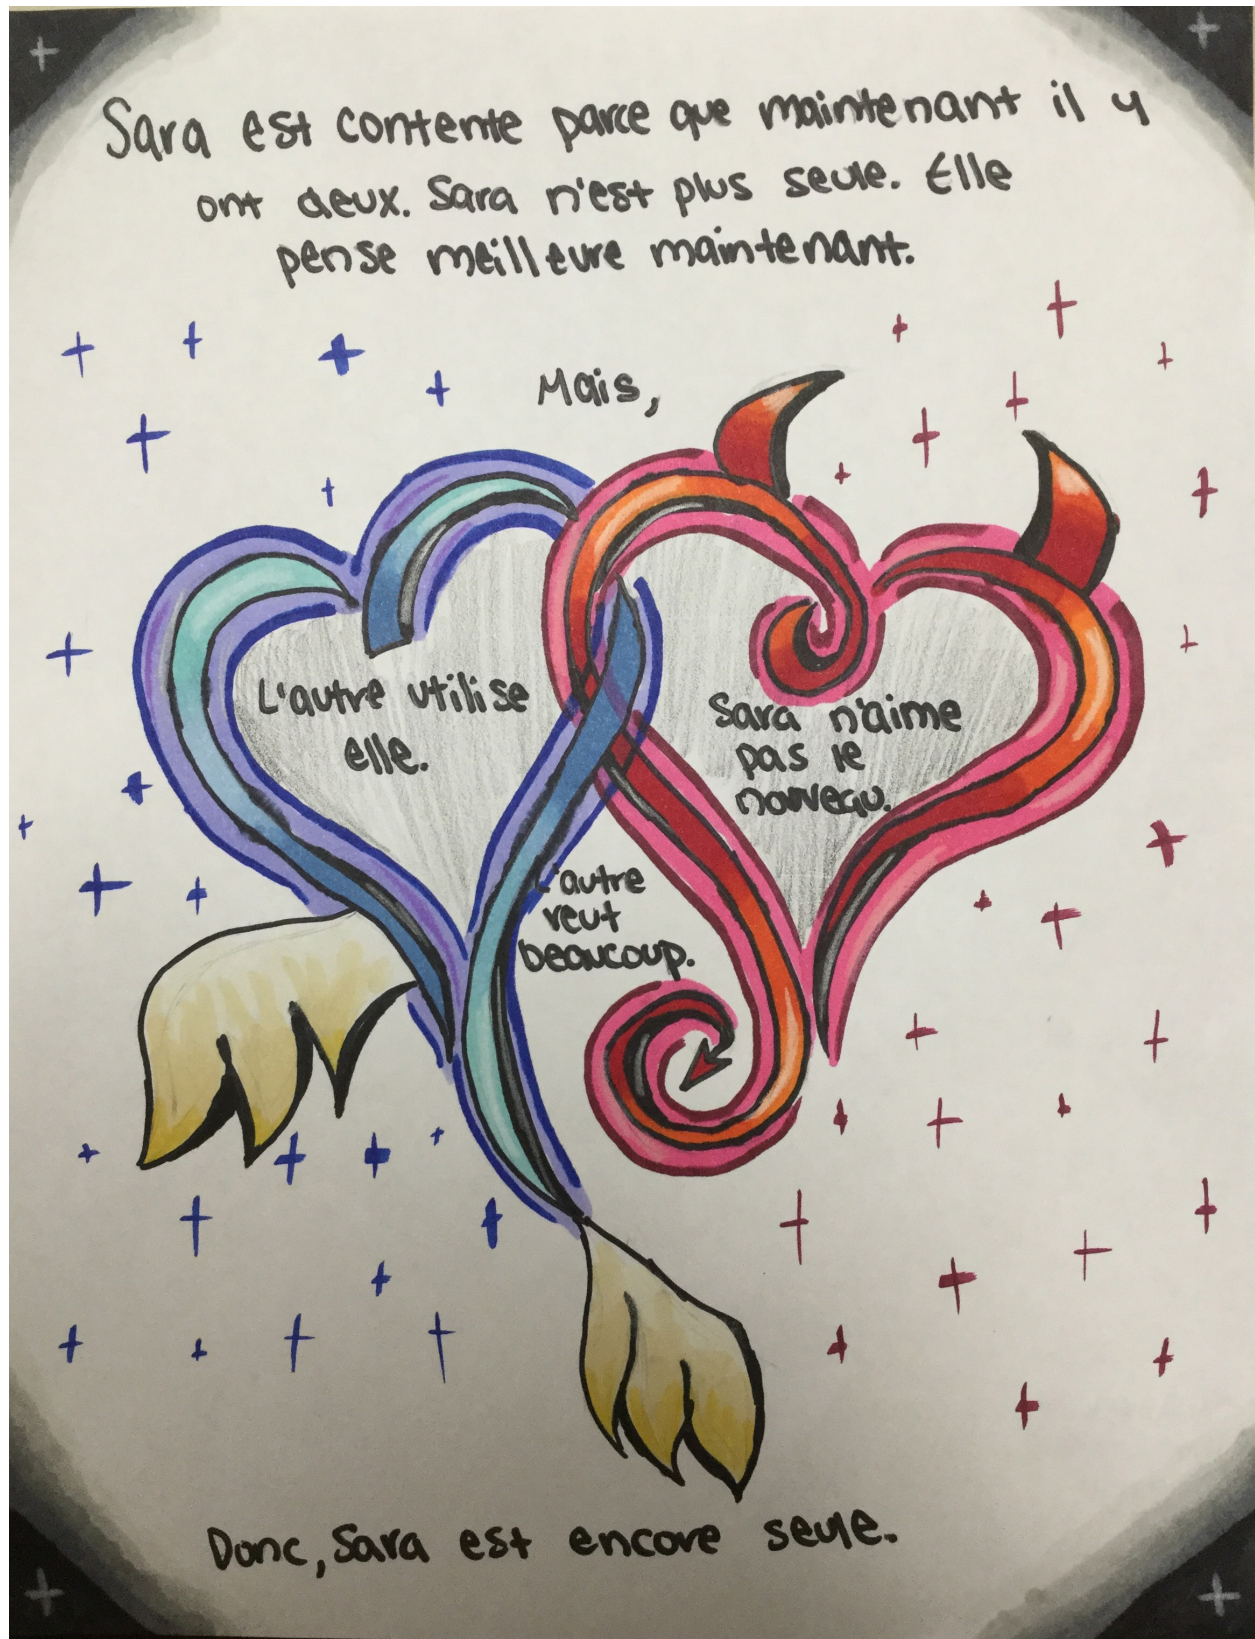 Sara est contente parce que maintenant il y
ont deux. Sara n'est plus seule. Elle
pense meilleure maintenant.
Mais,
L'autre utilise
elle.
Sara n'aime
pas le
nouveau.
L'autre
veut
beaucoup.
Donc, Sara est encore seule.